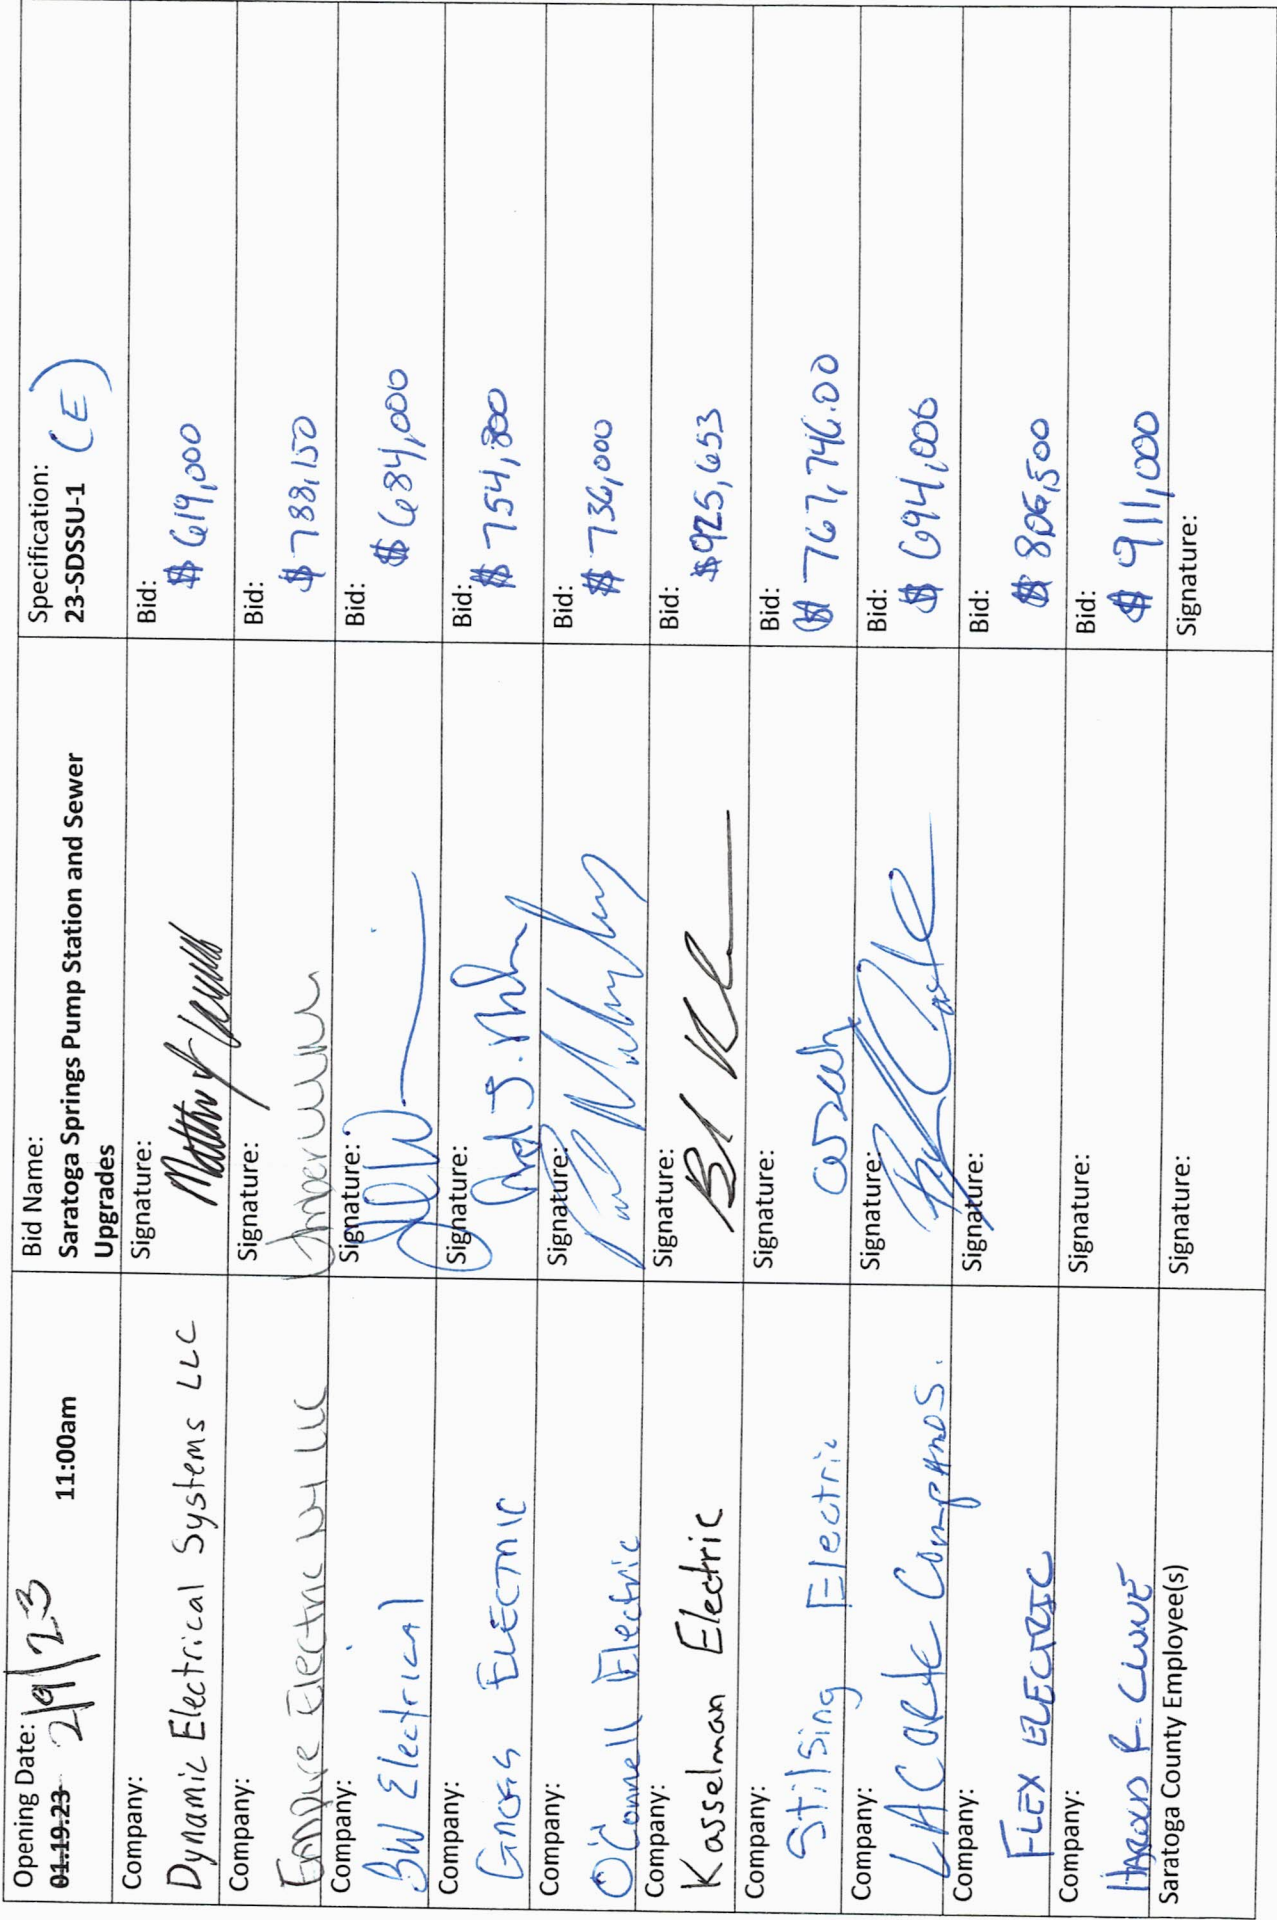 Opening Date: 2/9/23
01.19.23 11:00am
Bid Name:
Saratoga Springs Pump Station and Sewer
Upgrades
Specification:
23-SDSSU-1 (E)
Company:
Dynamic Electrical Systems LLC
Signature:
Bid:
$ 619,000
Company:
Empire Electric NY LLC
Signature:
Bid:
$ 788,150
Company:
BW Electrical
Signature:
Bid:
$ 684,000
Company:
Gross Electric
Signature:
Bid:
$ 754,800
Company:
O'Connell Electric
Signature:
Bid:
$ 736,000
Company:
Kasselman Electric
Signature:
Bid:
$925,653
Company:
Stilsing Electric
Signature:
Bid:
$ 767,746.00
Company:
LA CORTE COMPANIES.
Signature:
Bid:
$ 694,000
Company:
FLEX ELECTRIC
Signature:
Bid:
$ 806,500
Company:
HAROLD R. CLUNE
Signature:
Bid:
$ 911,000
Saratoga County Employee(s)
Signature:
Signature: